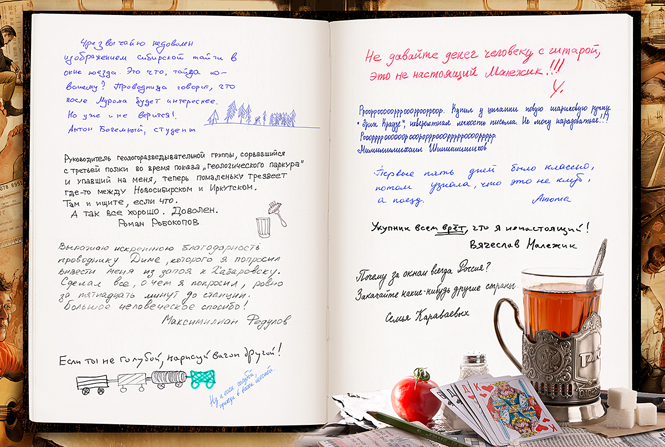 Чрезвычайно недоволен
изображением сибирской тайги в
окне поезда. Это что, тайга по-
вашему? Проводница говорит, что
после Мурома будет интереснее.
Но уже и не верится!
Антон Богемный, студент
Руководитель геологоразведывательной группы, сорвавшийся
с третьей полки во время показа „геологического паркура"
и упавший на меня, теперь помаленьку трезвеет
где-то между Новосибирском и Иркутском.
Там и ищите, если что.
А так все хорошо. Доволен.
Роман Робокопов
Выражаю искреннюю благодарность
проводнику Диме, которого я попросил
вывести меня из запоя к Хабаровску.
Сделал все, о чем я попросил, ровно
за пятнадцать минут до станции.
Большое человеческое спасибо!
Максимилиан Федулов
Если ты не голубой, нарисуй вагон другой!
Не давайте денег человеку с гитарой,
это не настоящий Малежик!!!
У.
Купил у цыганки новую шариковую ручку
"Эрих Краузе", невероятная легкость письма. Не могу нарадоваться!!!
Первые пять дней было классно,
потом узнала, что это не клуб,
а поезд.
Анюта
Укупник всем врёт, что я ненастоящий!
Вячеслав Малежик
Почему за окном всегда Россия?
Закачайте какие-нибудь другие страны
Семья Караваевых